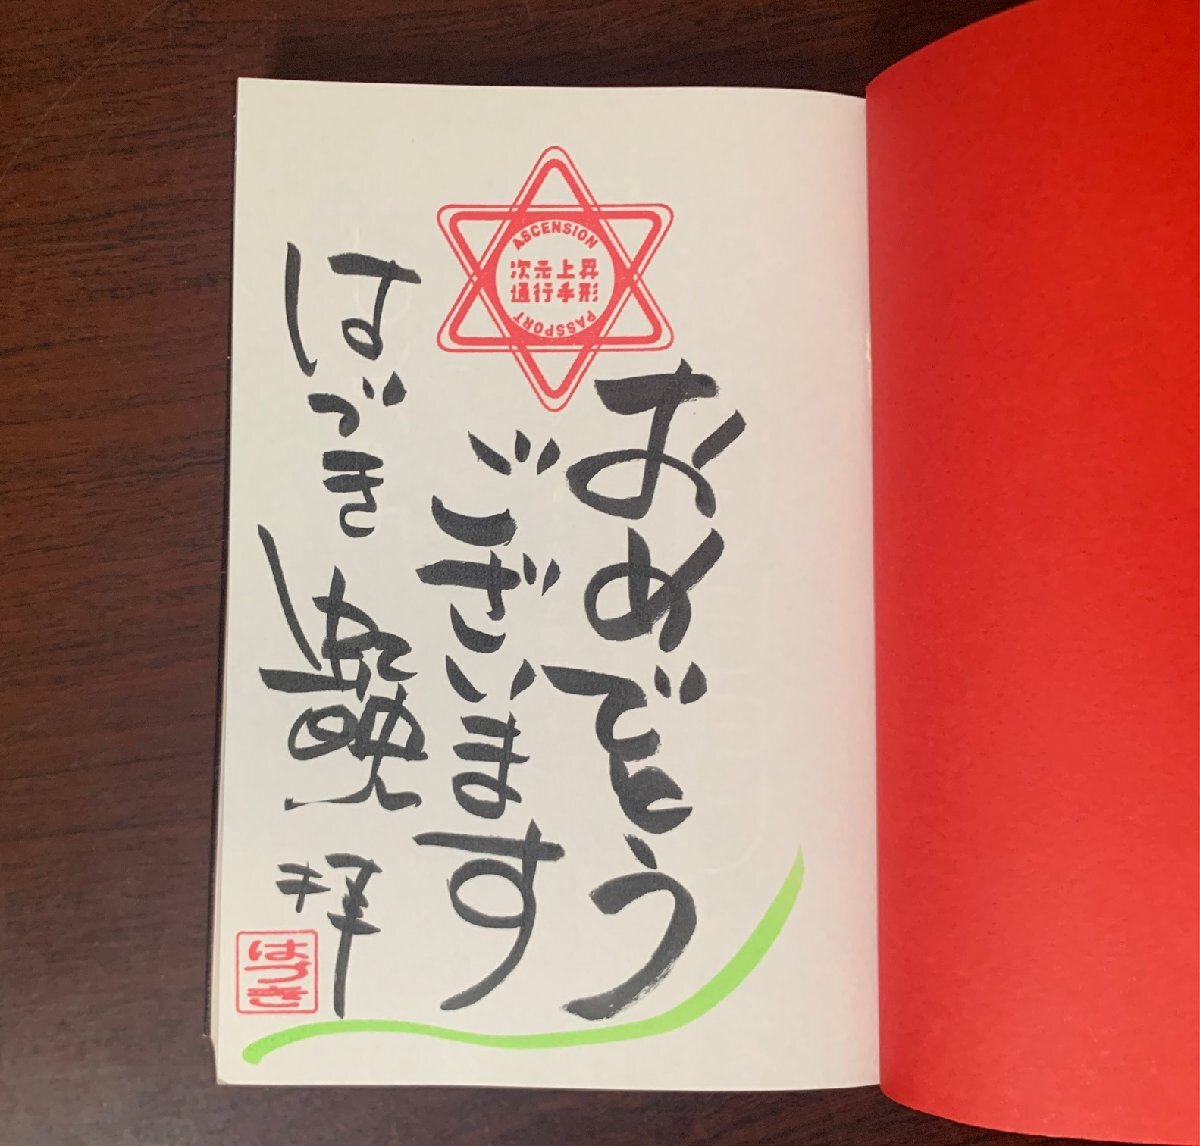 ASCENSION
次元上昇
通行手形
PASSPORT
おめでとう
ございます
はづき虹映 拝
はづき